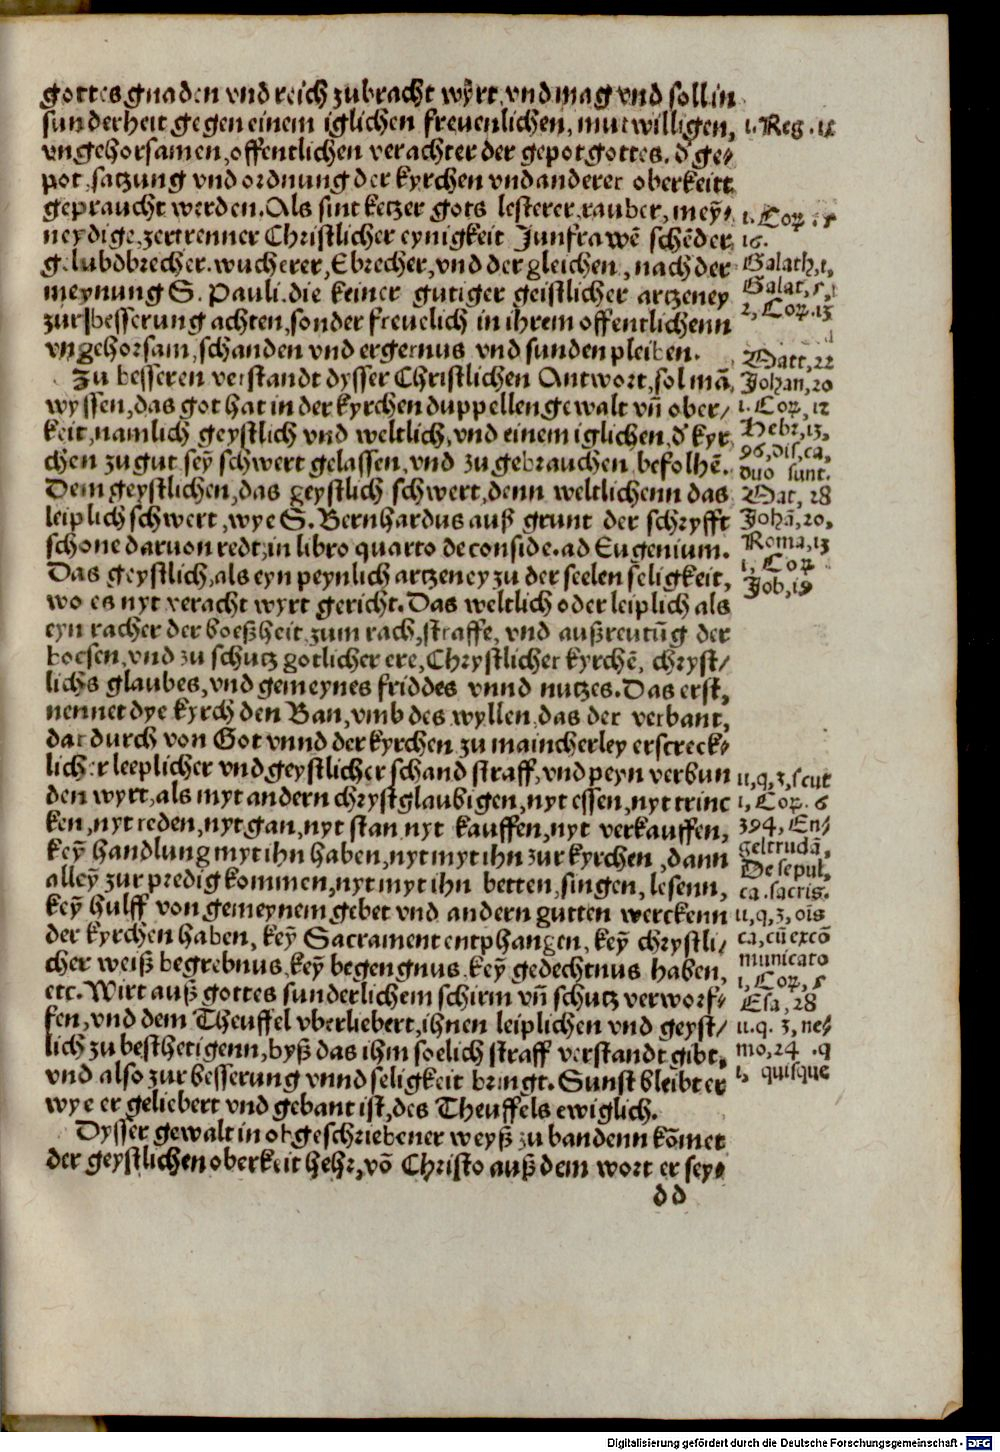 gottes gnaden vnd reich zubracht wyrt, vnd mag vnd soll in
sunderheit gegen einem iglichen freuenlichen, mutwilligen,
vngehorsamen, offentlichen verachter der gepot gottes. d' ge⸗
pot, satzung vnd ordnung der kyrchen vnd anderer oberkeitt
gepraucht werden. Als sint ketzer gots lesterer, rauber, meÿ⸗
neydige, zertrenner Christlicher eynigkeit Junfrawē schēder
gelubdbrecher. wucherer, Ebrecher, vnd der gleichen, nach der
meynung S. Pauli. die keiner gutiger geistlicher artzeney
zur besserung achten, sonder freuelich in ihrem offentlichenn
vngehorsam, schanden vnd ergernus vnd sunden pleiben.
Zu besseren verstandt dysser Christlichen Antwort, sol mā
wyssen, das got hat in der kyrchen duppellen gewalt vn̄ ober⸗
keit, namlich geystlich vnd weltlich, vnd einem iglichen, d' kyr
chen zu gut seÿ schwert gelassen, vnd zu gebrauchen befolhē.
Dem geystlichen, das geystlich schwert, denn weltlichenn das
leiplich schwert, wye S. Bernhardus auß grunt der schryfft
schone daruon redt, in libro quarto de conside. ad Eugenium.
Das geystlich, als eyn peynlich artzeney zu der seelen seligkeit,
wo es nyt veracht wyrt gericht. Das weltlich oder leiplich als
eyn racher der boeßheit, zum rach, straffe, vnd außreutūg der
boesen, vnd zu schutz gotlicher ere, Chrystlicher kyrchē, chryst⸗
lichs glaubes, vnd gemeynes friddes vnnd nutzes. Das erst,
nennet dye kyrch den Ban, vmb des wyllen, das der verbant,
dar durch von Got vnnd der kyrchen zu maincherley erscreck⸗
licher leeplicher vnd geystlicher schand straff, vnd peyn verbun
den wyrt, als myt andern chrystglaubigen, nyt essen, nyt trinc
ken, nyt reden, nyt gan, nyt stan nyt kauffen, nyt verkauffen,
keÿ handlung myt ihn haben, nyt myt ihn zur kyrchen, dann
alleÿ zur predig kommen, nyt myt ihn betten, singen, lesenn,
keÿ hulff von gemeynem gebet vnd andern gutten werckenn
der kyrchen haben, keÿ Sacrament entphangen, keÿ chrystli⸗
cher weiß begrebnus, keÿ begengnus, keÿ gedechtnus haben,
etc. Wirt auß gottes sunderlichem schirm vn̄ schutz verworf⸗
fen, vnd dem Theuffel vberliebert, ihnen leiplichen vnd geyst⸗
lich zu besthetigenn, byß das ihm soelich straff verstandt gibt,
vnd also zur besserung vnnd seligkeit bringt. Sunst bleibt er
wye er geliebert vnd gebant ist, des Theuffels ewiglich.
Dysser gewalt in obgeschriebener weyß zu bandenn kōmet
der geystlichen oberkeit hehr, vō Christo auß dem wort er sey⸗
dd
1. Reg. 12
1. Cor. 5
16.
Galath, 1,
Galat, 5,
2, Cor. 13
Matt, 22
Johan, 20
1. Cor, 12
Hebr, 13,
96, dis, ca,
duo sunt.
Mat, 28
Johā, 20,
Roma, 13
1, Cor
Job, 19
11, q, 3, sicut
1, Cor. 6
394, En⸗
geltrudā,
De sepul,
ca. sacris.
11, q, 3, oīs
ca, cū excō
municato
1, Cor, 5
Esa, 28
11. q. 3, ne⸗
mo, 24 . q
1, quisque
Digitalisierung gefördert durch die Deutsche Forschungsgemeinschaft - DFG